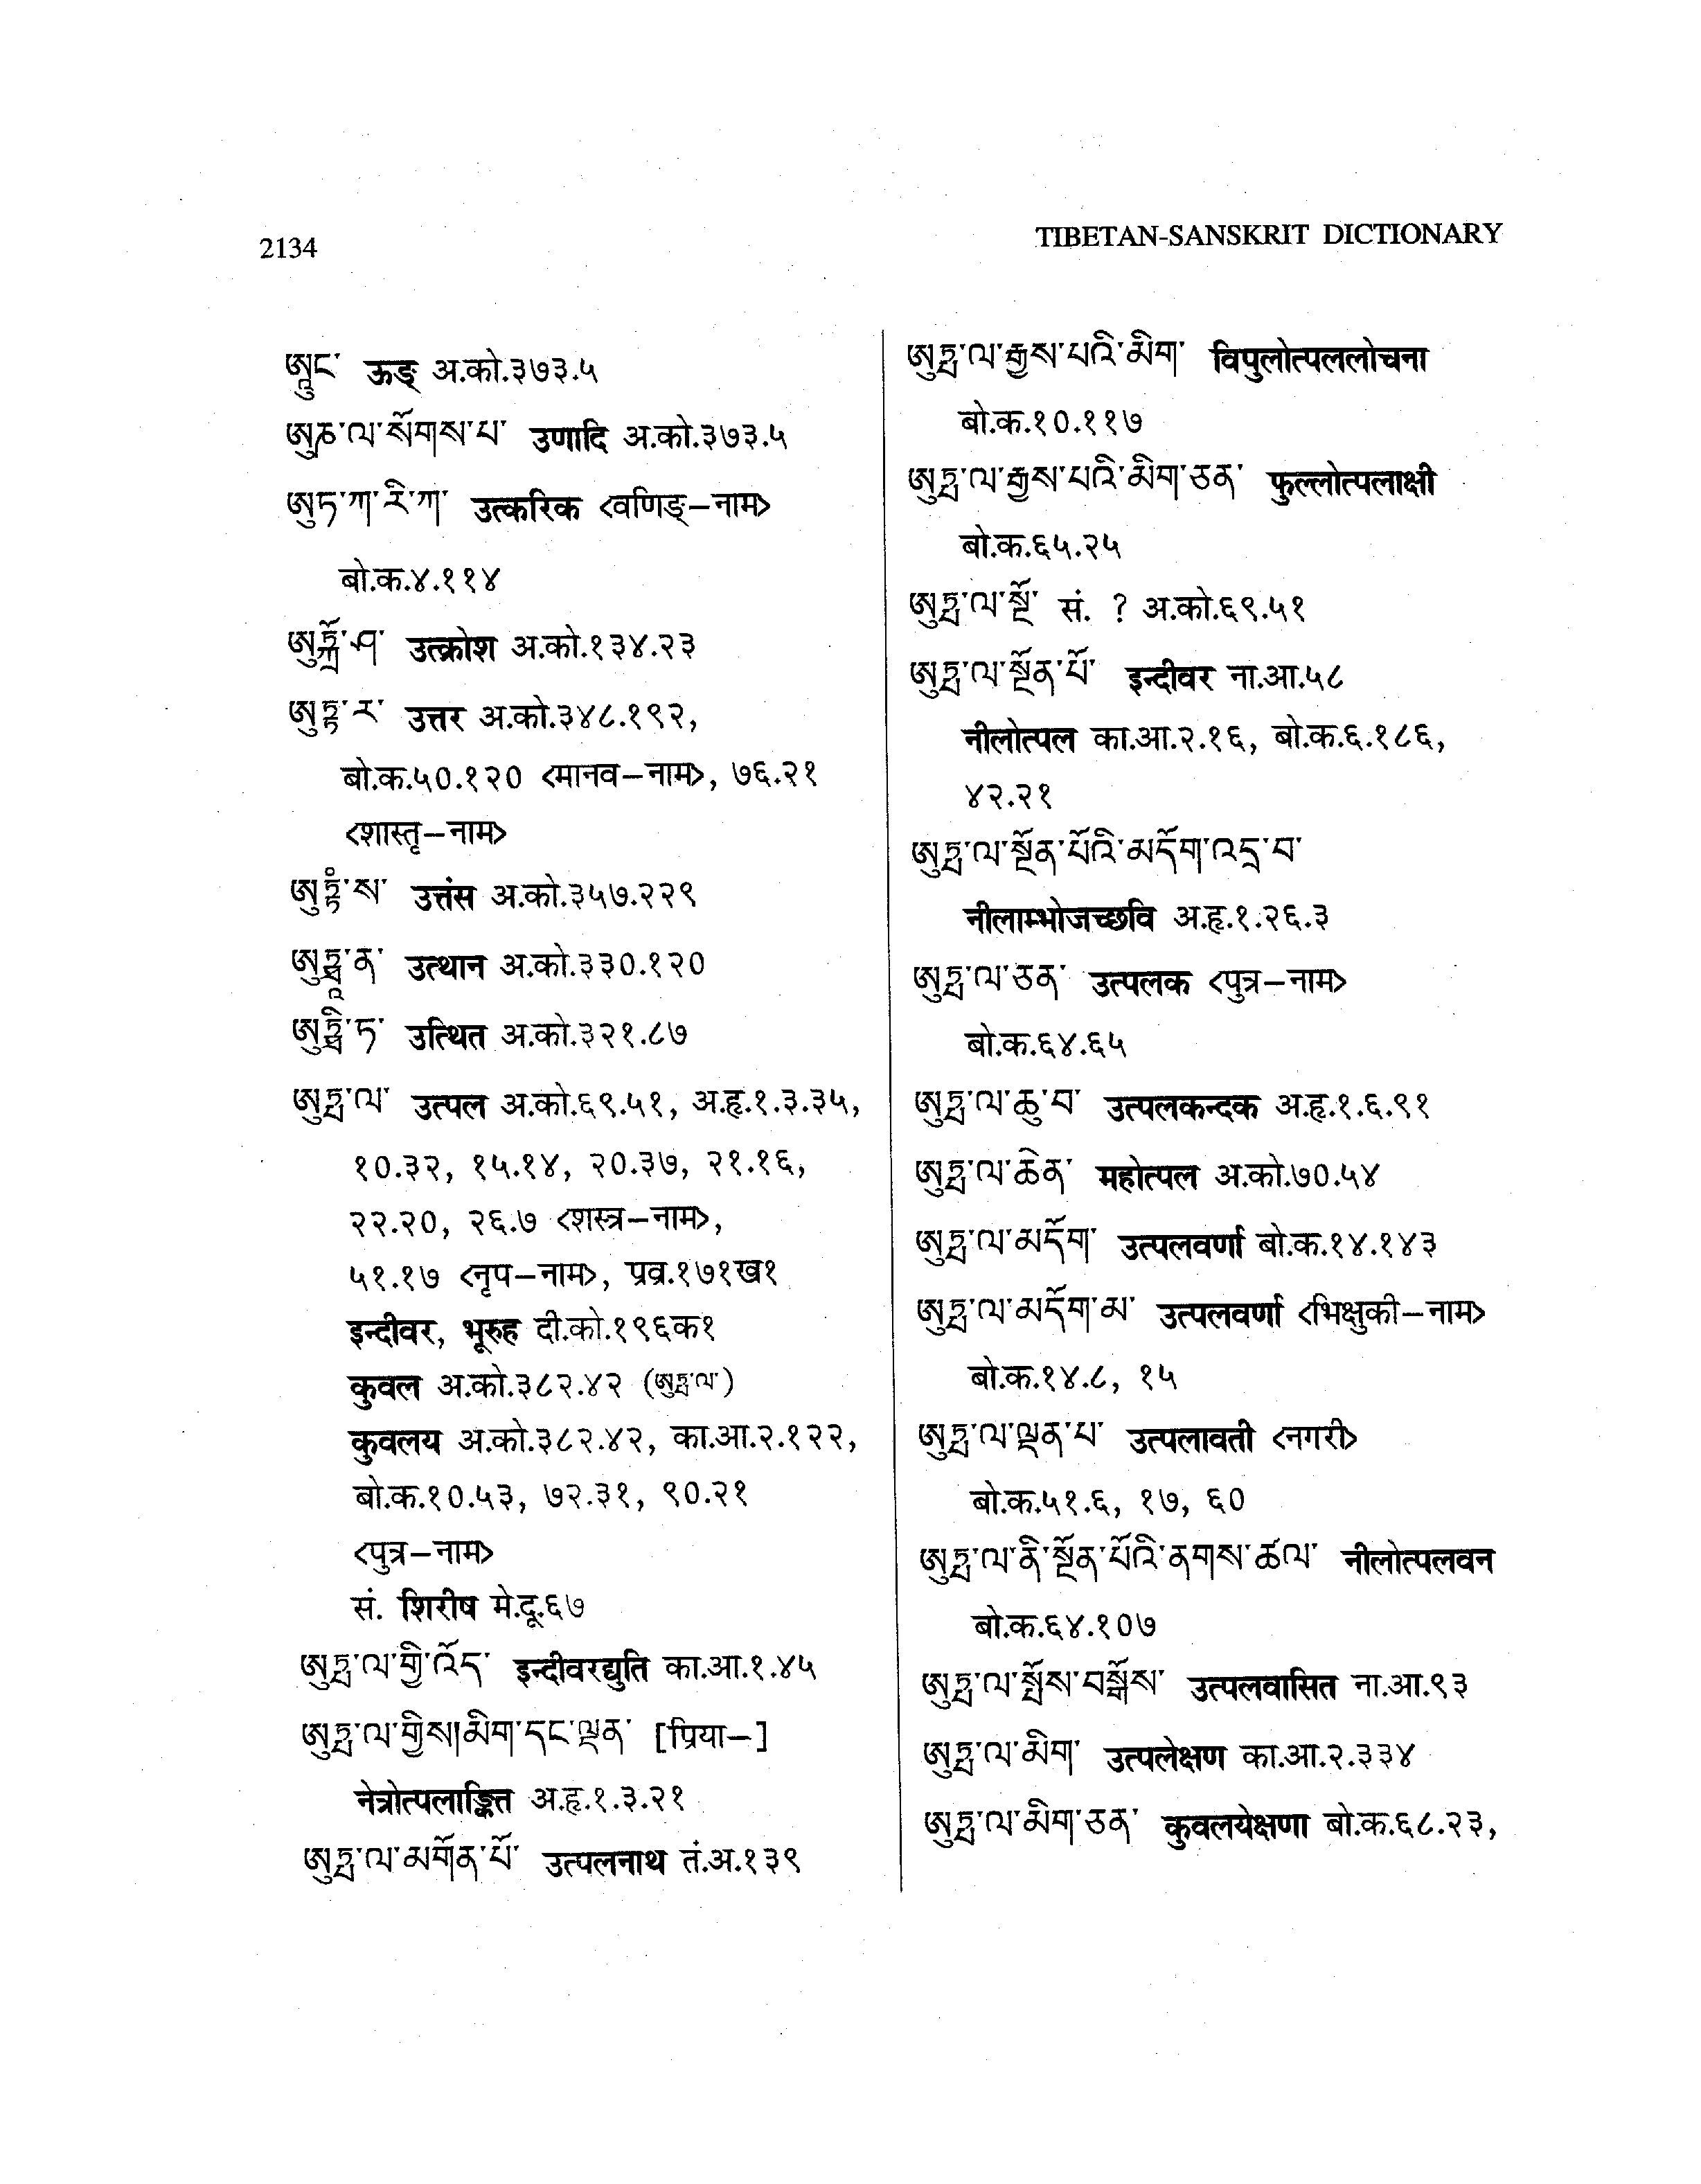 2134
TIBETAN-SANSKRIT DICTIONARY
ཨཱུང་ ऊङ् अ.को.३७३.५
ཨུཎ་ལ་སོགས་པ་ उणादि अ.को.३७३.५
ཨུཏ་ཀ་རི་ཀ་ उत्करिक <वणिङ्–नाम>
बो.क.४.११४
ཨུཏྐྲོ་ཤ་ उत्क्रोश अ.को.१३४.२३
ཨུཏྟ་ར་ उत्तर अ.को.३४८.१९२,
बो.क.५०.१२० <मानव–नाम>, ७६.२१
<शास्तृ–नाम>
ཨུཏྟཾ་ས་ उत्तंस अ.को.३५७.२२९
ཨུཏྠཱ་ན་ उत्थान अ.को.३३०.१२०
ཨུཏྠི་ཏ་ उत्थित अ.को.३२१.८७
ཨུཏྤ་ལ་ उत्पल अ.को.६९.५१, अ.हृ.१.३.३५,
१०.३२, १५.१४, २०.३७, २१.१६,
२२.२०, २६.७ <शस्त्र–नाम>,
५१.१७ <नृप–नाम>, प्रव्र.१७१ख१
इन्दीवर, भूरुह दी.को.१९६क१
कुवल अ.को.३८२.४२ (ཨུཏྤ་ལ་)
कुवलय अ.को.३८२.४२, का.आ.२.१२२,
बो.क.१०.५३, ७२.३१, ९०.२१
<पुत्र–नाम>
सं. शिरीष मे.दू.६७
ཨུཏྤ་ལ་གྱི་འོད་ इन्दीवरद्युति का.आ.१.४५
ཨུཏྤ་ལ་གྱིས།མིག་དང་ལྡན་ [प्रिया–]
नेत्रोत्पलाङ्कित अ.हृ.१.३.२१
ཨུཏྤ་ལ་མགོན་པོ་ उत्पलनाथ तं.अ.१३९
ཨུཏྤ་ལ་རྒྱས་པའི་མིག་ विपुलोत्पललोचना
बो.क.१०.११७
ཨུཏྤ་ལ་རྒྱས་པའི་མིག་ཅན་ फुल्लोत्पलाक्षी
बो.क.६५.२५
ཨུཏྤ་ལ་སྔོ་ सं. ? अ.को.६९.५१
ཨུཏྤ་ལ་སྔོན་པོ་ इन्दीवर ना.आ.५८
नीलोत्पल का.आ.२.१६, बो.क.६.१८६,
४२.२१
ཨུཏྤ་ལ་སྔོན་པོའི་མདོག་འདྲ་བ་
नीलाम्भोजच्छवि अ.हृ.१.२६.३
ཨུཏྤ་ལ་ཅན་ उत्पलक <पुत्र–नाम>
बो.क.६४.६५
ཨུཏྤ་ལ་ཆུ་བ་ उत्पलकन्दक अ.हृ.१.६.९१
ཨུཏྤ་ལ་ཆེན་ महोत्पल अ.को.७०.५४
ཨུཏྤ་ལ་མདོག་ उत्पलवर्णा बो.क.१४.१४३
ཨུཏྤ་ལ་མདོག་མ་ उत्पलवर्णा <भिक्षुकी–नाम>
बो.क.१४.८, १५
ཨུཏྤ་ལ་ལྡན་པ་ उत्पलावती <नगरी>
बो.क.५१.६, १७, ६०
ཨུཏྤ་ལ་ནི་སྔོན་པོའི་ནགས་ཚལ་ नीलोत्पलवन
बो.क.६४.१०७
ཨུཏྤ་ལ་སྤོས་བསྒོས་ उत्पलवासित ना.आ.९३
ཨུཏྤ་ལ་མིག་ उत्पलेक्षण का.आ.२.३३४
ཨུཏྤ་ལ་མིག་ཅན་ कुवलयेक्षणा बो.क.६८.२३,